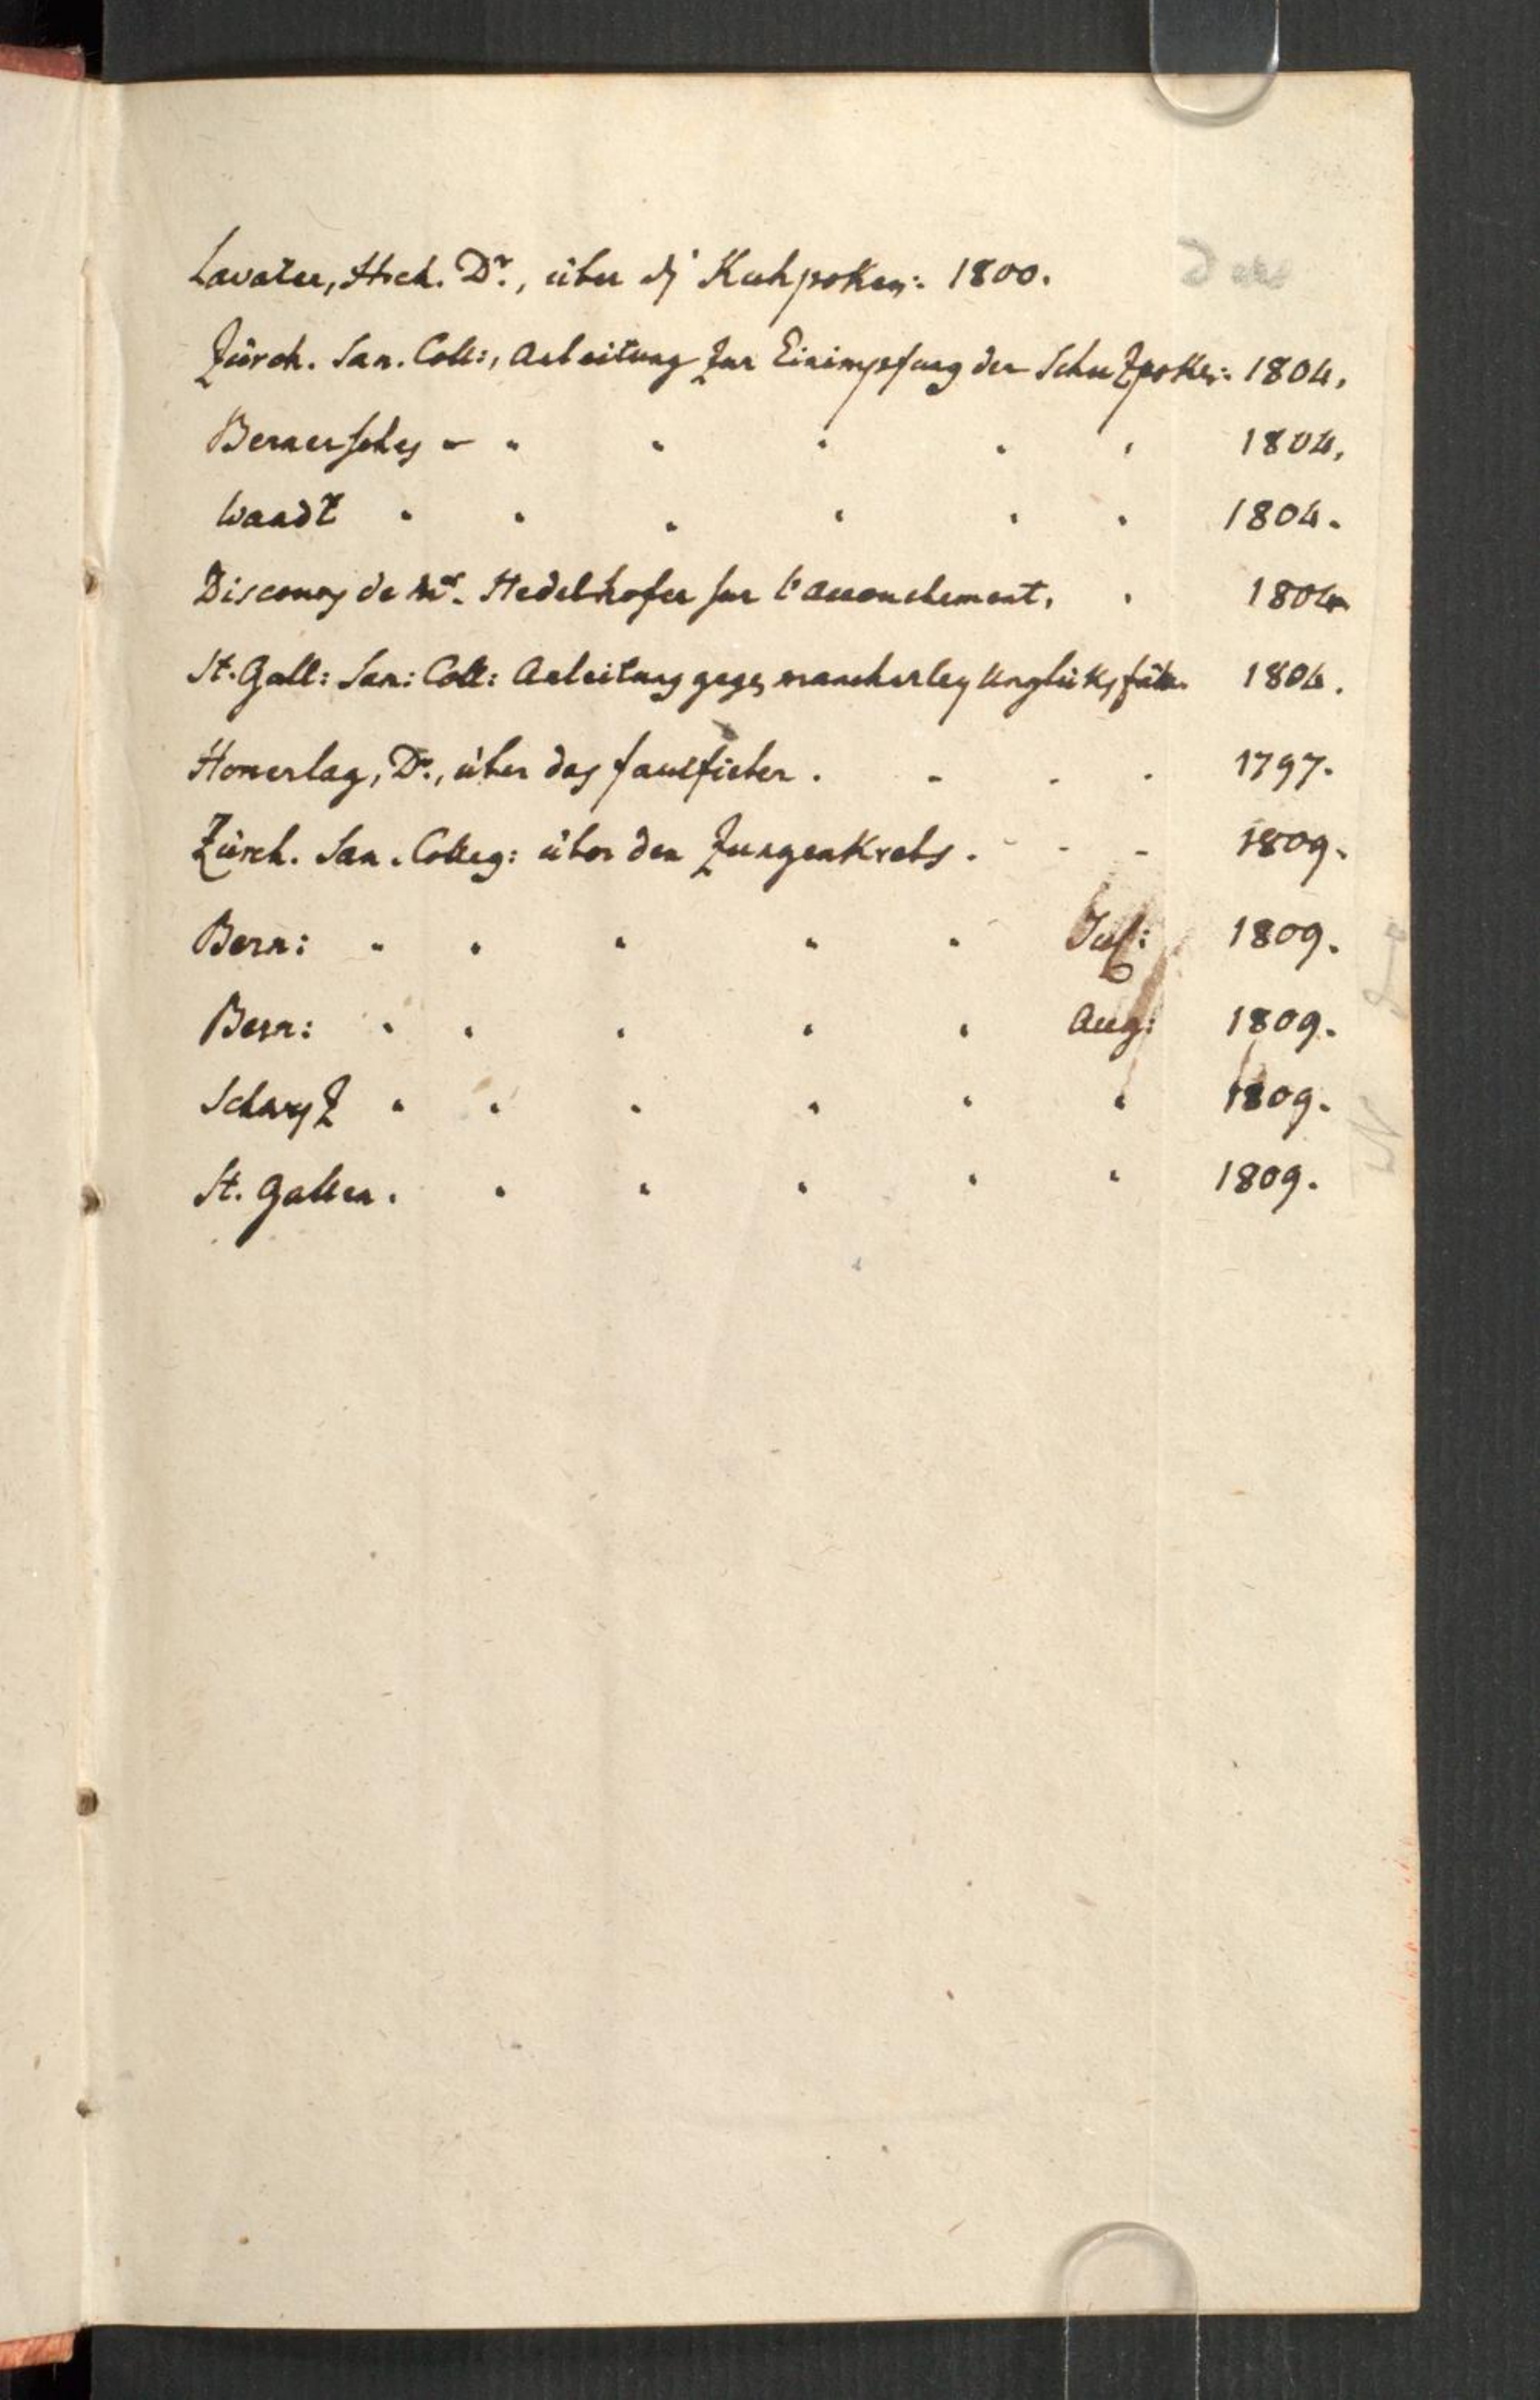 Lavater, Hrch. Dr., über die Kuhpoken: 1800.
Zürch. San. Coll:, Anleitung zur Einimpfung der Schuzpoken: 1804.
Bernersches - " " " " " 1804.
Waadt " " " " " " 1804.
Discours de Mr. Nedelhofer sur l'accouchement. . 1804
St. Gall: San: Coll: Anleitung gegen mancherley Unglüksfälle. 1804.
Honerlag, Dr., über das faulfieber. - - . 1797.
Zürch. San. Colleg: über den Zungenkrebs. - - - 1809.
Bern: " " " " " Jul: 1809.
Bern: " " " " " Aug: 1809.
Schwyz " " " " " " 1809.
St. Gallen. " " " " " 1809.